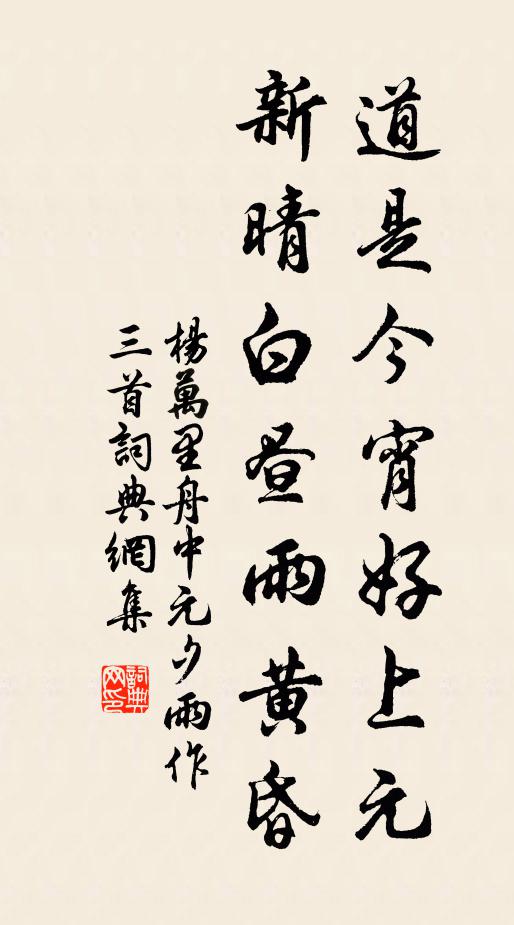 道是今宵好上元
新晴白昼雨黄昏
楊萬里舟中元夕雨作
三首詞典網集
詞典
网印